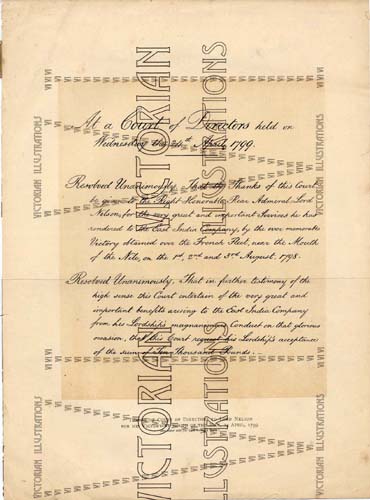 At a Court of Directors held on
Wednesday the 24th April 1799.
Resolved Unanimously, That the Thanks of this Court
be given to the Right Honorable Rear Admiral Lord
Nelson, for the very great and important Services he has
rendered to the East India Company, by the ever memorable
Victory obtained over the French Fleet, near the Mouth
of the Nile, on the 1st, 2nd and 3rd August, 1798.
Resolved Unanimously, That in further testimony of the
high sense this Court entertain of the very great and
important benefits arising to the East India Company
from his Lordship's magnanimous Conduct on that glorious
occasion, that this Court request his Lordship's acceptance
of the sum of Ten Thousand Pounds.
of Directors Nelson
for his April, 1799
VICTORIAN ILLUSTRATIONS
VICTORIAN ILLUSTRATIONS
VICTORIAN ILLUSTRATIONS
VICTORIAN ILLUSTRATIONS
VICTORIAN
ILLUSTRATIONS
VICTORIAN
ILLUSTRATIONS